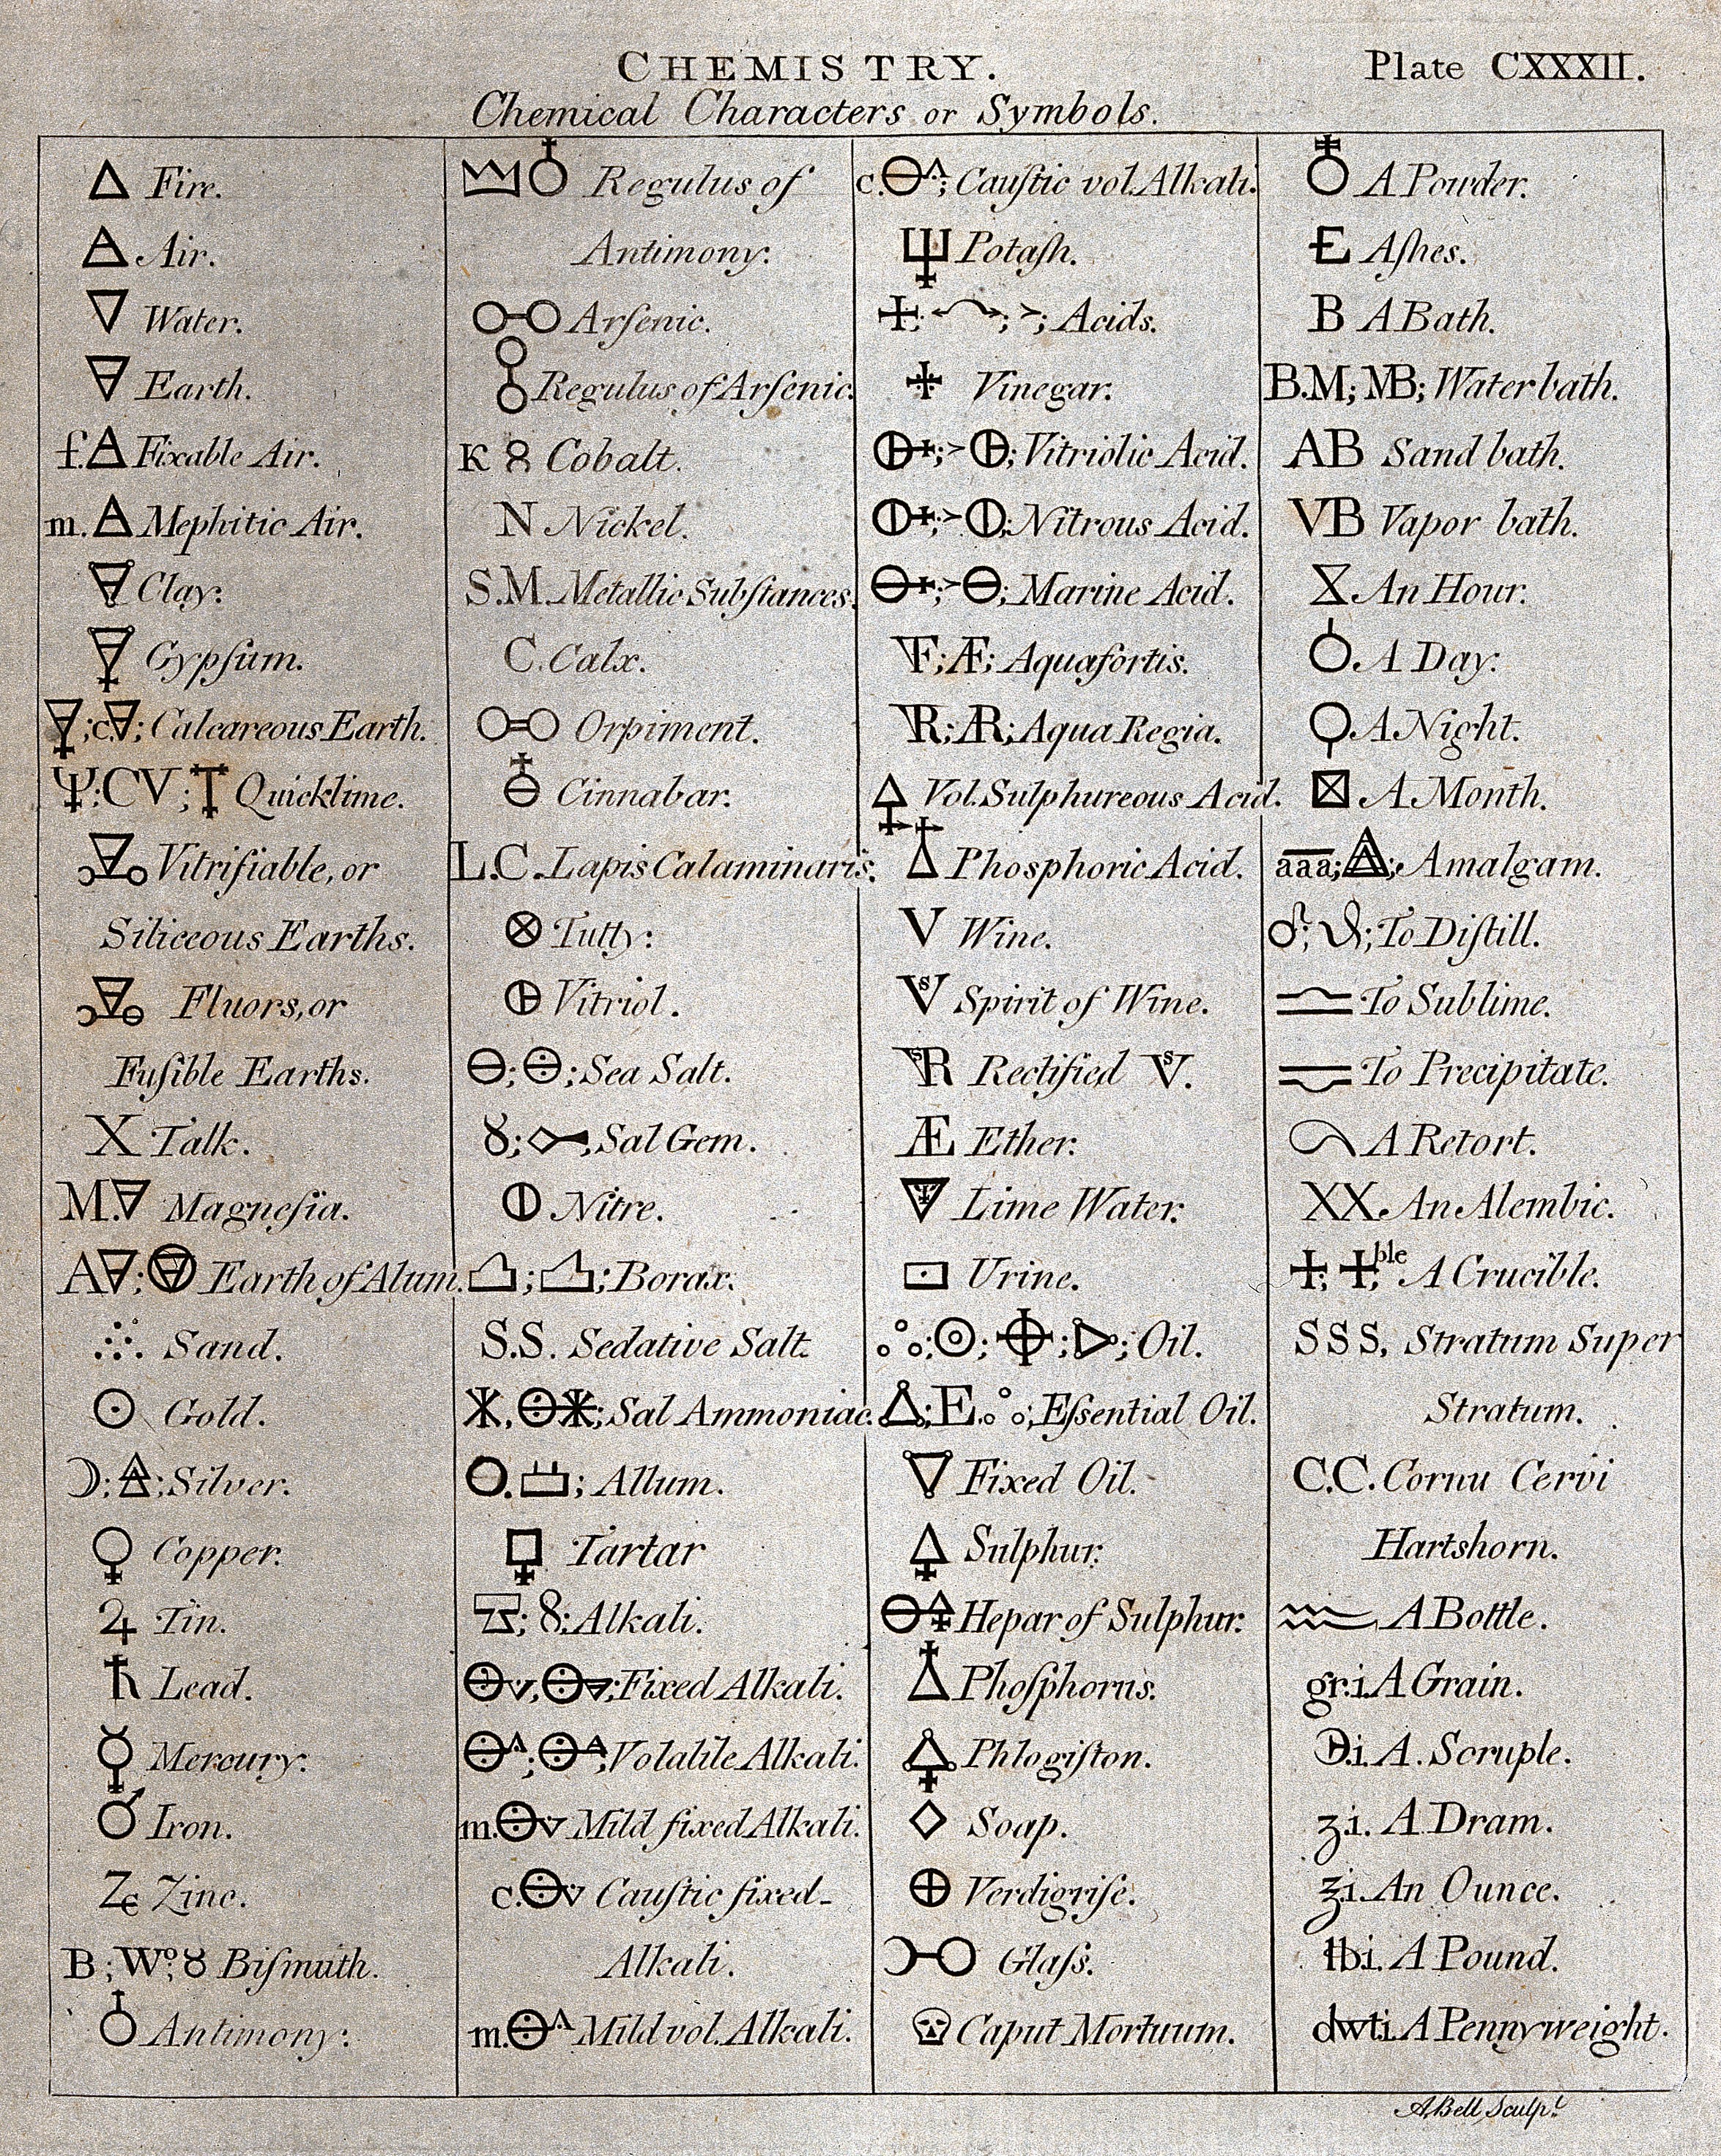 CHEMISTRY.
Plate CXXXII.
Chemical Characters or Symbols.
Fire.
Air.
Water.
Earth.
f. Fixable Air.
m. Mephitic Air.
Clay.
Gypſum.
; c. ; Calcareous Earth.
; CV ; Quicklime.
Vitrifiable, or
Siliceous Earths.
Fluors, or
Fuſible Earths.
X Talk.
M. Magneſia.
A ; Earth of Alum.
Sand.
Gold.
☽; Silver.
♀ Copper.
♃ Tin.
♄ Lead.
☿ Mercury.
♂ Iron.
Zinc.
B ; Wo; ♉ Biſmuth.
Antimony.
Regulus of
Antimony.
Arſenic.
Regulus of Arſenic.
K 8 Cobalt.
N Nickel.
S.M. Metallic Subſtances.
C. Calx.
Orpiment.
Cinnabar.
L.C. Lapis Calaminaris.
Tutty.
Vitriol.
; ; Sea Salt.
♉; Sal Gem.
Nitre.
; ; Borax.
S.S. Sedative Salt.
; Sal Ammoniac.
; Allum.
Tartar
; 8; Alkali.
; Fixed Alkali.
; Volatile Alkali.
m. Mild fixed Alkali.
c. Cauſtic fixed-
Alkali.
m. Mild vol. Alkali.
c. ; Cauſtic vol. Alkali.
Potaſh.
; ; Acids.
Vinegar.
; ; Vitriolic Acid.
; ; Nitrous Acid.
; ; Marine Acid.
; Æ; Aquafortis.
; Aqua Regia.
Vol. Sulphureous Acid.
Phosphoric Acid.
V Wine.
Spirit of Wine.
Rectified V.
Æ Ether.
Lime Water.
Urine.
; ; ; ; Oil.
; E. ; Eſsential Oil.
Fixed Oil.
Sulphur.
Hepar of Sulphur.
Phoſphorus.
Phlogiſton.
Soap.
Verdigriſe.
Glaſs.
Caput Mortuum.
A Powder.
E Aſhes.
B A Bath.
B.M; MB; Water bath.
AB Sand bath.
VB Vapor bath.
An Hour.
A Day.
A Night.
A Month.
aaa; ; Amalgam.
; ; To Diſtill.
To Sublime.
To Precipitate.
A Retort.
XX. An Alembic.
; ble A Crucible.
SSS, Stratum Super
Stratum.
C.C. Cornu Cervi
Hartshorn.
A Bottle.
gr.i. A Grain.
℈.i. A. Scruple.
ʒi. A Dram.
ʒi. An Ounce.
℔i. A Pound.
dwt.i. A Pennyweight.
A. Bell Sculpt.